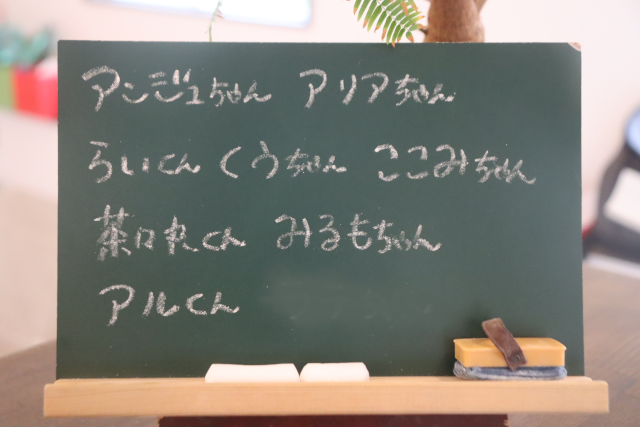 アンジュちゃん アリアちゃん
らいくん くうちゃん ここみちゃん
茶々丸くん みるもちゃん
アルくん